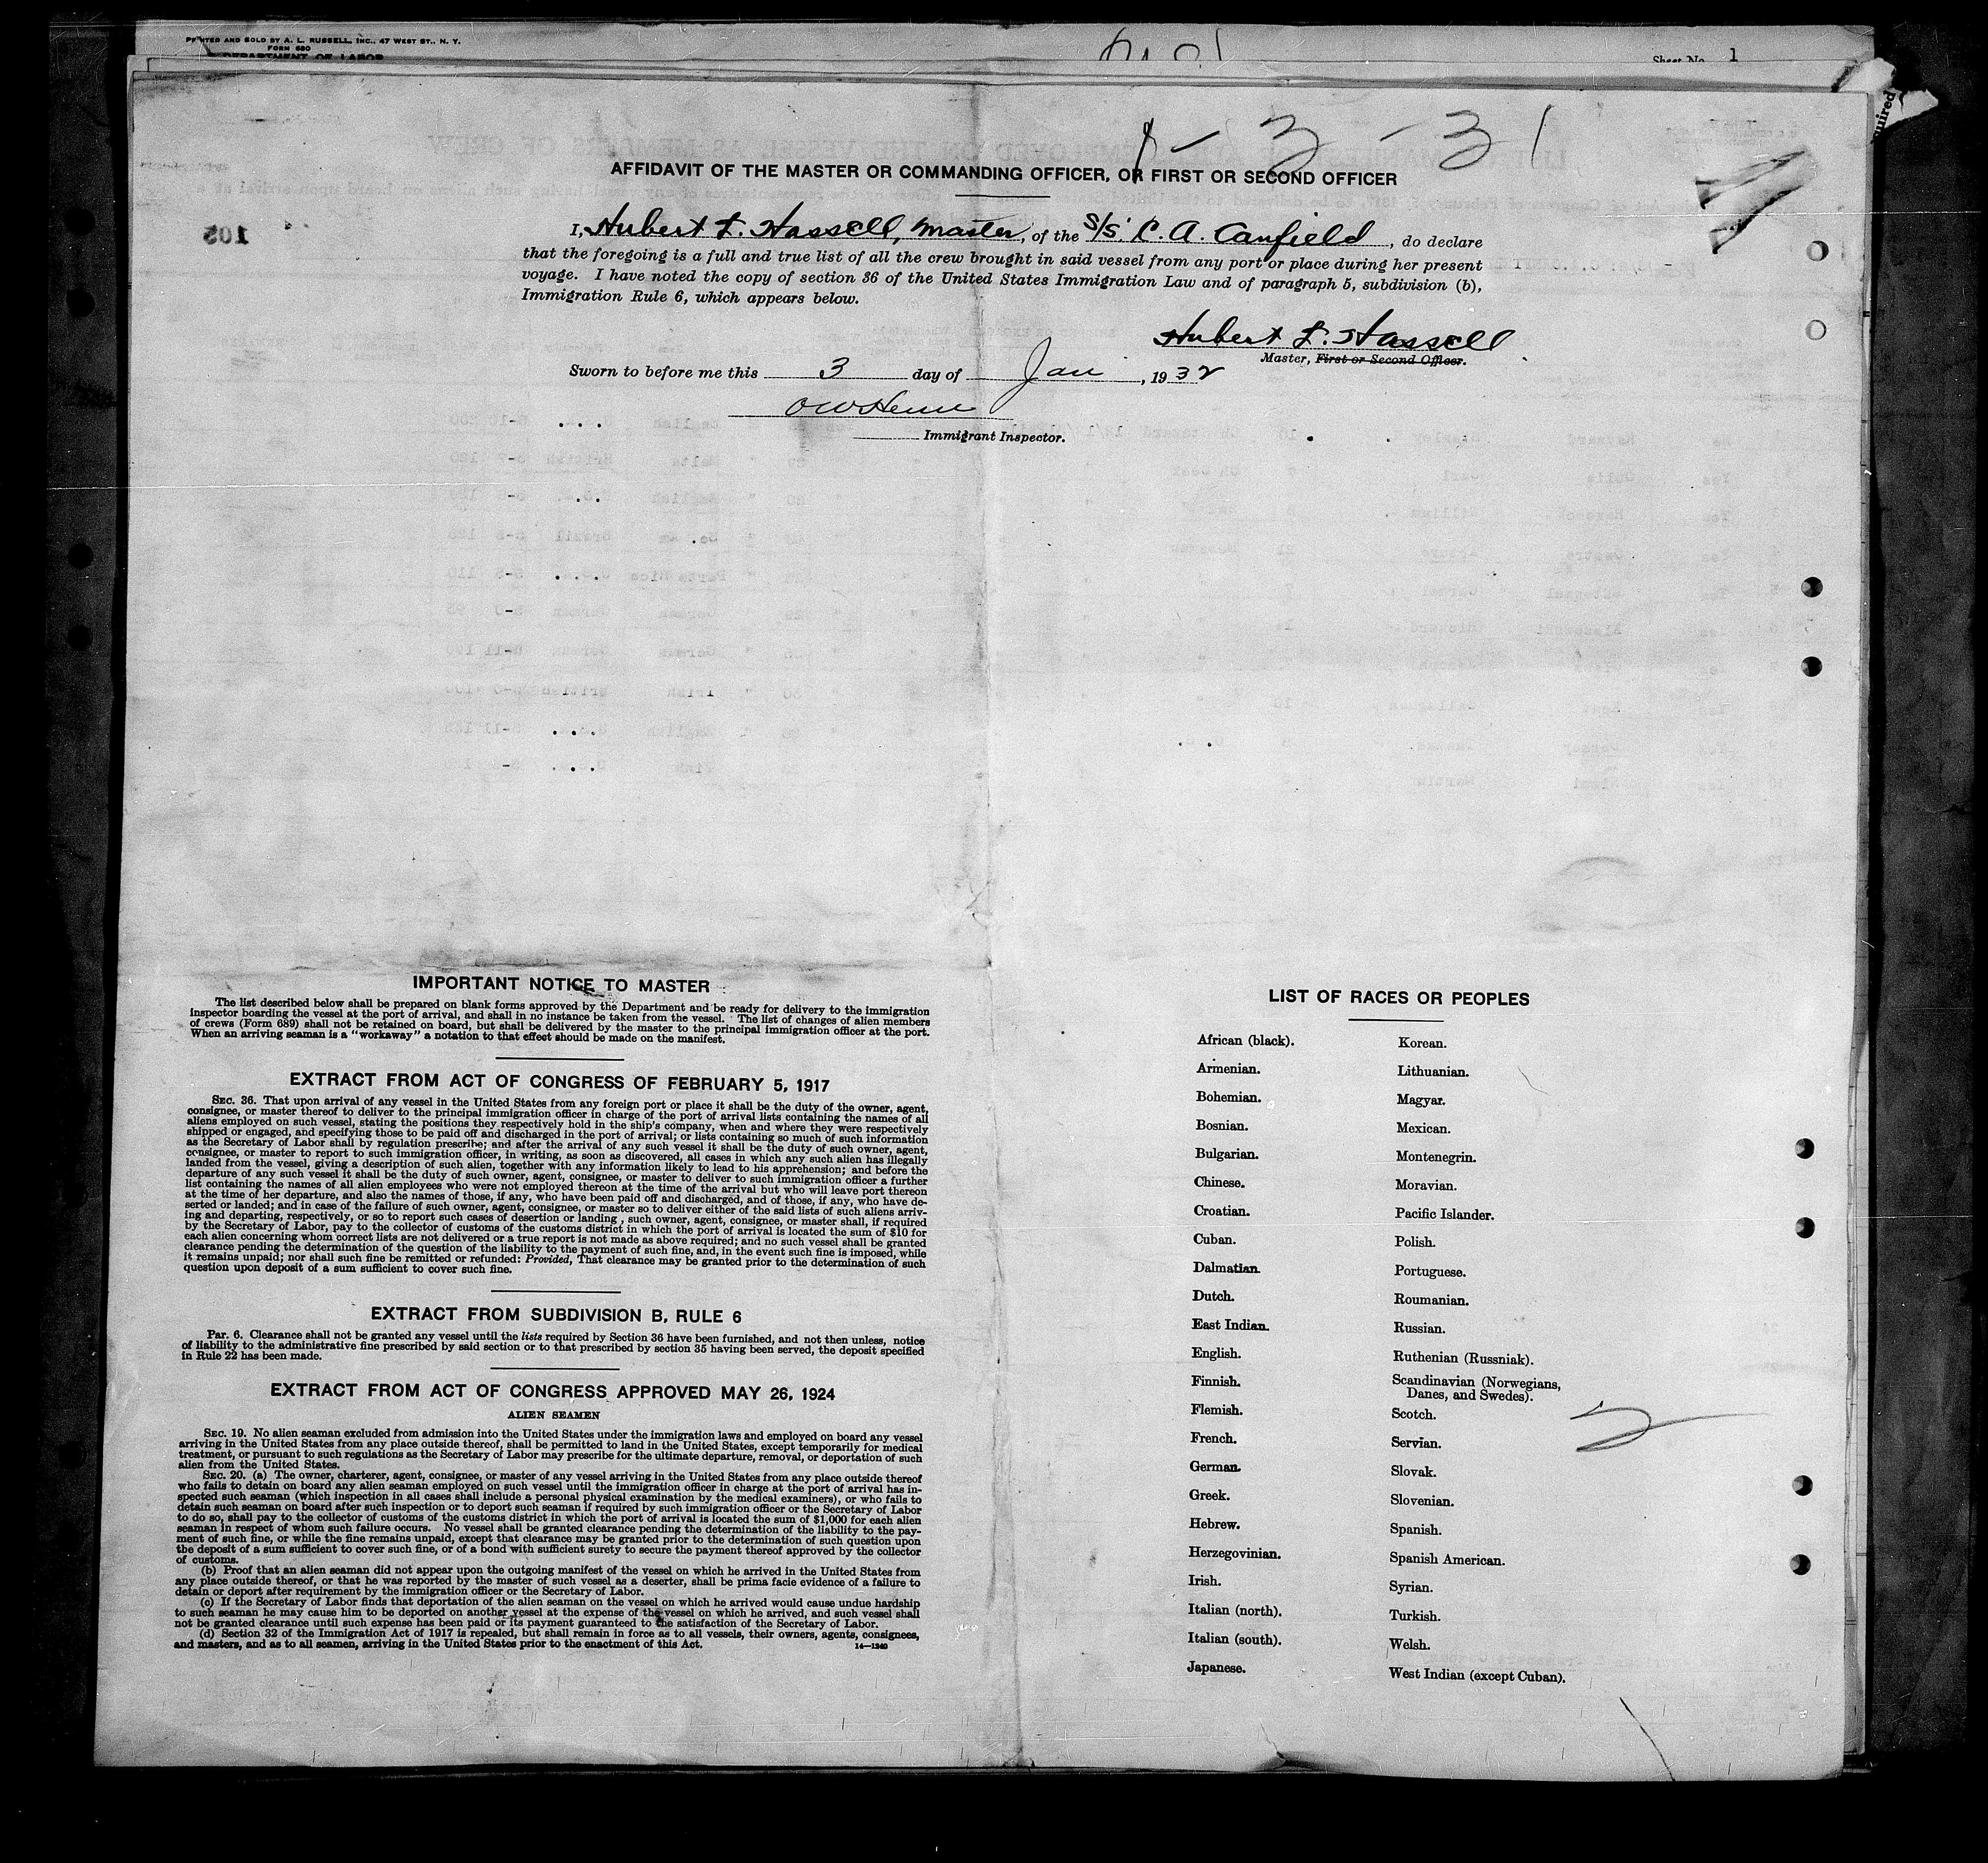 PRINTED AND SOLD BY A. L. RUSSELL, INC., 47 WEST ST., N. Y.
FORM 680
DEPARTMENT OF LABOR
Sheet No. 1
1 - 3 - 31
AFFIDAVIT OF THE MASTER OR COMMANDING OFFICER, OR FIRST OR SECOND OFFICER
I, Hubert L. Hassell, Master, of the S/S. C. A. Canfield, do declare
that the foregoing is a full and true list of all the crew brought in said vessel from any port or place during her present
voyage. I have noted the copy of section 36 of the United States Immigration Law and of paragraph 5, subdivision (b),
Immigration Rule 6, which appears below.
Hubert L. Hassell
Master, First or Second Officer.
Sworn to before me this 3 day of Jan, 1932
Immigrant Inspector.
IMPORTANT NOTICE TO MASTER
The list described below shall be prepared on blank forms approved by the Department and be ready for delivery to the immigration
inspector boarding the vessel at the port of arrival, and shall in no instance be taken from the vessel. The list of changes of alien members
of crews (Form 689) shall not be retained on board, but shall be delivered by the master to the principal immigration officer at the port.
When an arriving seaman is a "workaway" a notation to that effect should be made on the manifest.
EXTRACT FROM ACT OF CONGRESS OF FEBRUARY 5, 1917
SEC. 36. That upon arrival of any vessel in the United States from any foreign port or place it shall be the duty of the owner, agent,
consignee, or master thereof to deliver to the principal immigration officer in charge of the port of arrival lists containing the names of all
aliens employed on such vessel, stating the positions they respectively hold in the ship's company, when and where they were respectively
shipped or engaged, and specifying those to be paid off and discharged in the port of arrival; or lists containing so much of such information
as the Secretary of Labor shall by regulation prescribe; and after the arrival of any such vessel it shall be the duty of such owner, agent,
consignee, or master to report to such immigration officer, in writing, as soon as discovered, all cases in which any such alien has illegally
landed from the vessel, giving a description of such alien, together with any information likely to lead to his apprehension; and before the
departure of any such vessel it shall be the duty of such owner, agent, consignee, or master to deliver to such immigration officer a further
list containing the names of all alien employees who were not employed thereon at the time of the arrival but who will leave port thereon
at the time of her departure, and also the names of those, if any, who have been paid off and discharged, and of those, if any, who have de-
serted or landed; and in case of the failure of such owner, agent, consignee, or master so to deliver either of the said lists of such aliens arriv-
ing and departing, respectively, or so to report such cases of desertion or landing , such owner, agent, consignee, or master shall, if required
by the Secretary of Labor, pay to the collector of customs of the customs district in which the port of arrival is located the sum of $10 for
each alien concerning whom correct lists are not delivered or a true report is not made as above required; and no such vessel shall be granted
clearance pending the determination of the question of the liability to the payment of such fine, and, in the event such fine is imposed, while
it remains unpaid; nor shall such fine be remitted or refunded: Provided, That clearance may be granted prior to the determination of such
question upon deposit of a sum sufficient to cover such fine.
EXTRACT FROM SUBDIVISION B, RULE 6
Par. 6. Clearance shall not be granted any vessel until the lists required by Section 36 have been furnished, and not then unless, notice
of liability to the administrative fine prescribed by said section or to that prescribed by section 35 having been served, the deposit specified
in Rule 22 has been made.
EXTRACT FROM ACT OF CONGRESS APPROVED MAY 26, 1924
ALIEN SEAMEN
SEC. 19. No alien seaman excluded from admission into the United States under the immigration laws and employed on board any vessel
arriving in the United States from any place outside thereof, shall be permitted to land in the United States, except temporarily for medical
treatment, or pursuant to such regulations as the Secretary of Labor may prescribe for the ultimate departure, removal, or deportation of such
alien from the United States.
SEC. 20. (a) The owner, charterer, agent, consignee, or master of any vessel arriving in the United States from any place outside thereof
who fails to detain on board any alien seaman employed on such vessel until the immigration officer in charge at the port of arrival has in-
spected such seaman (which inspection in all cases shall include a personal physical examination by the medical examiners), or who fails to
detain such seaman on board after such inspection or to deport such seaman if required by such immigration officer or the Secretary of Labor
to do so, shall pay to the collector of customs of the customs district in which the port of arrival is located the sum of $1,000 for each alien
seaman in respect of whom such failure occurs. No vessel shall be granted clearance pending the determination of the liability to the pay-
ment of such fine, or while the fine remains unpaid, except that clearance may be granted prior to the determination of such question upon
the deposit of a sum sufficient to cover such fine, or of a bond with sufficient surety to secure the payment thereof approved by the collector
of customs.
(b) Proof that an alien seaman did not appear upon the outgoing manifest of the vessel on which he arrived in the United States from
any place outside thereof, or that he was reported by the master of such vessel as a deserter, shall be prima facie evidence of a failure to
detain or deport after requirement by the immigration officer or the Secretary of Labor.
(c) If the Secretary of Labor finds that deportation of the alien seaman on the vessel on which he arrived would cause undue hardship
to such seaman he may cause him to be deported on another vessel at the expense of the vessel on which he arrived, and such vessel shall
not be granted clearance until such expense has been paid or its payment guaranteed to the satisfaction of the Secretary of Labor.
(d) Section 32 of the Immigration Act of 1917 is repealed, but shall remain in force as to all vessels, their owners, agents, consignees,
and masters, and as to all seamen, arriving in the United States prior to the enactment of this Act.
14—1240
LIST OF RACES OR PEOPLES
African (black).
Armenian.
Bohemian.
Bosnian.
Bulgarian.
Chinese.
Croatian.
Cuban.
Dalmatian.
Dutch.
East Indian.
English.
Finnish.
Flemish.
French.
German.
Greek.
Hebrew.
Herzegovinian.
Irish.
Italian (north).
Italian (south).
Japanese.
Korean.
Lithuanian.
Magyar.
Mexican.
Montenegrin.
Moravian.
Pacific Islander.
Polish.
Portuguese.
Roumanian.
Russian.
Ruthenian (Russniak).
Scandinavian (Norwegians,
Danes, and Swedes).
Scotch.
Servian.
Slovak.
Slovenian.
Spanish.
Spanish American.
Syrian.
Turkish.
Welsh.
West Indian (except Cuban).